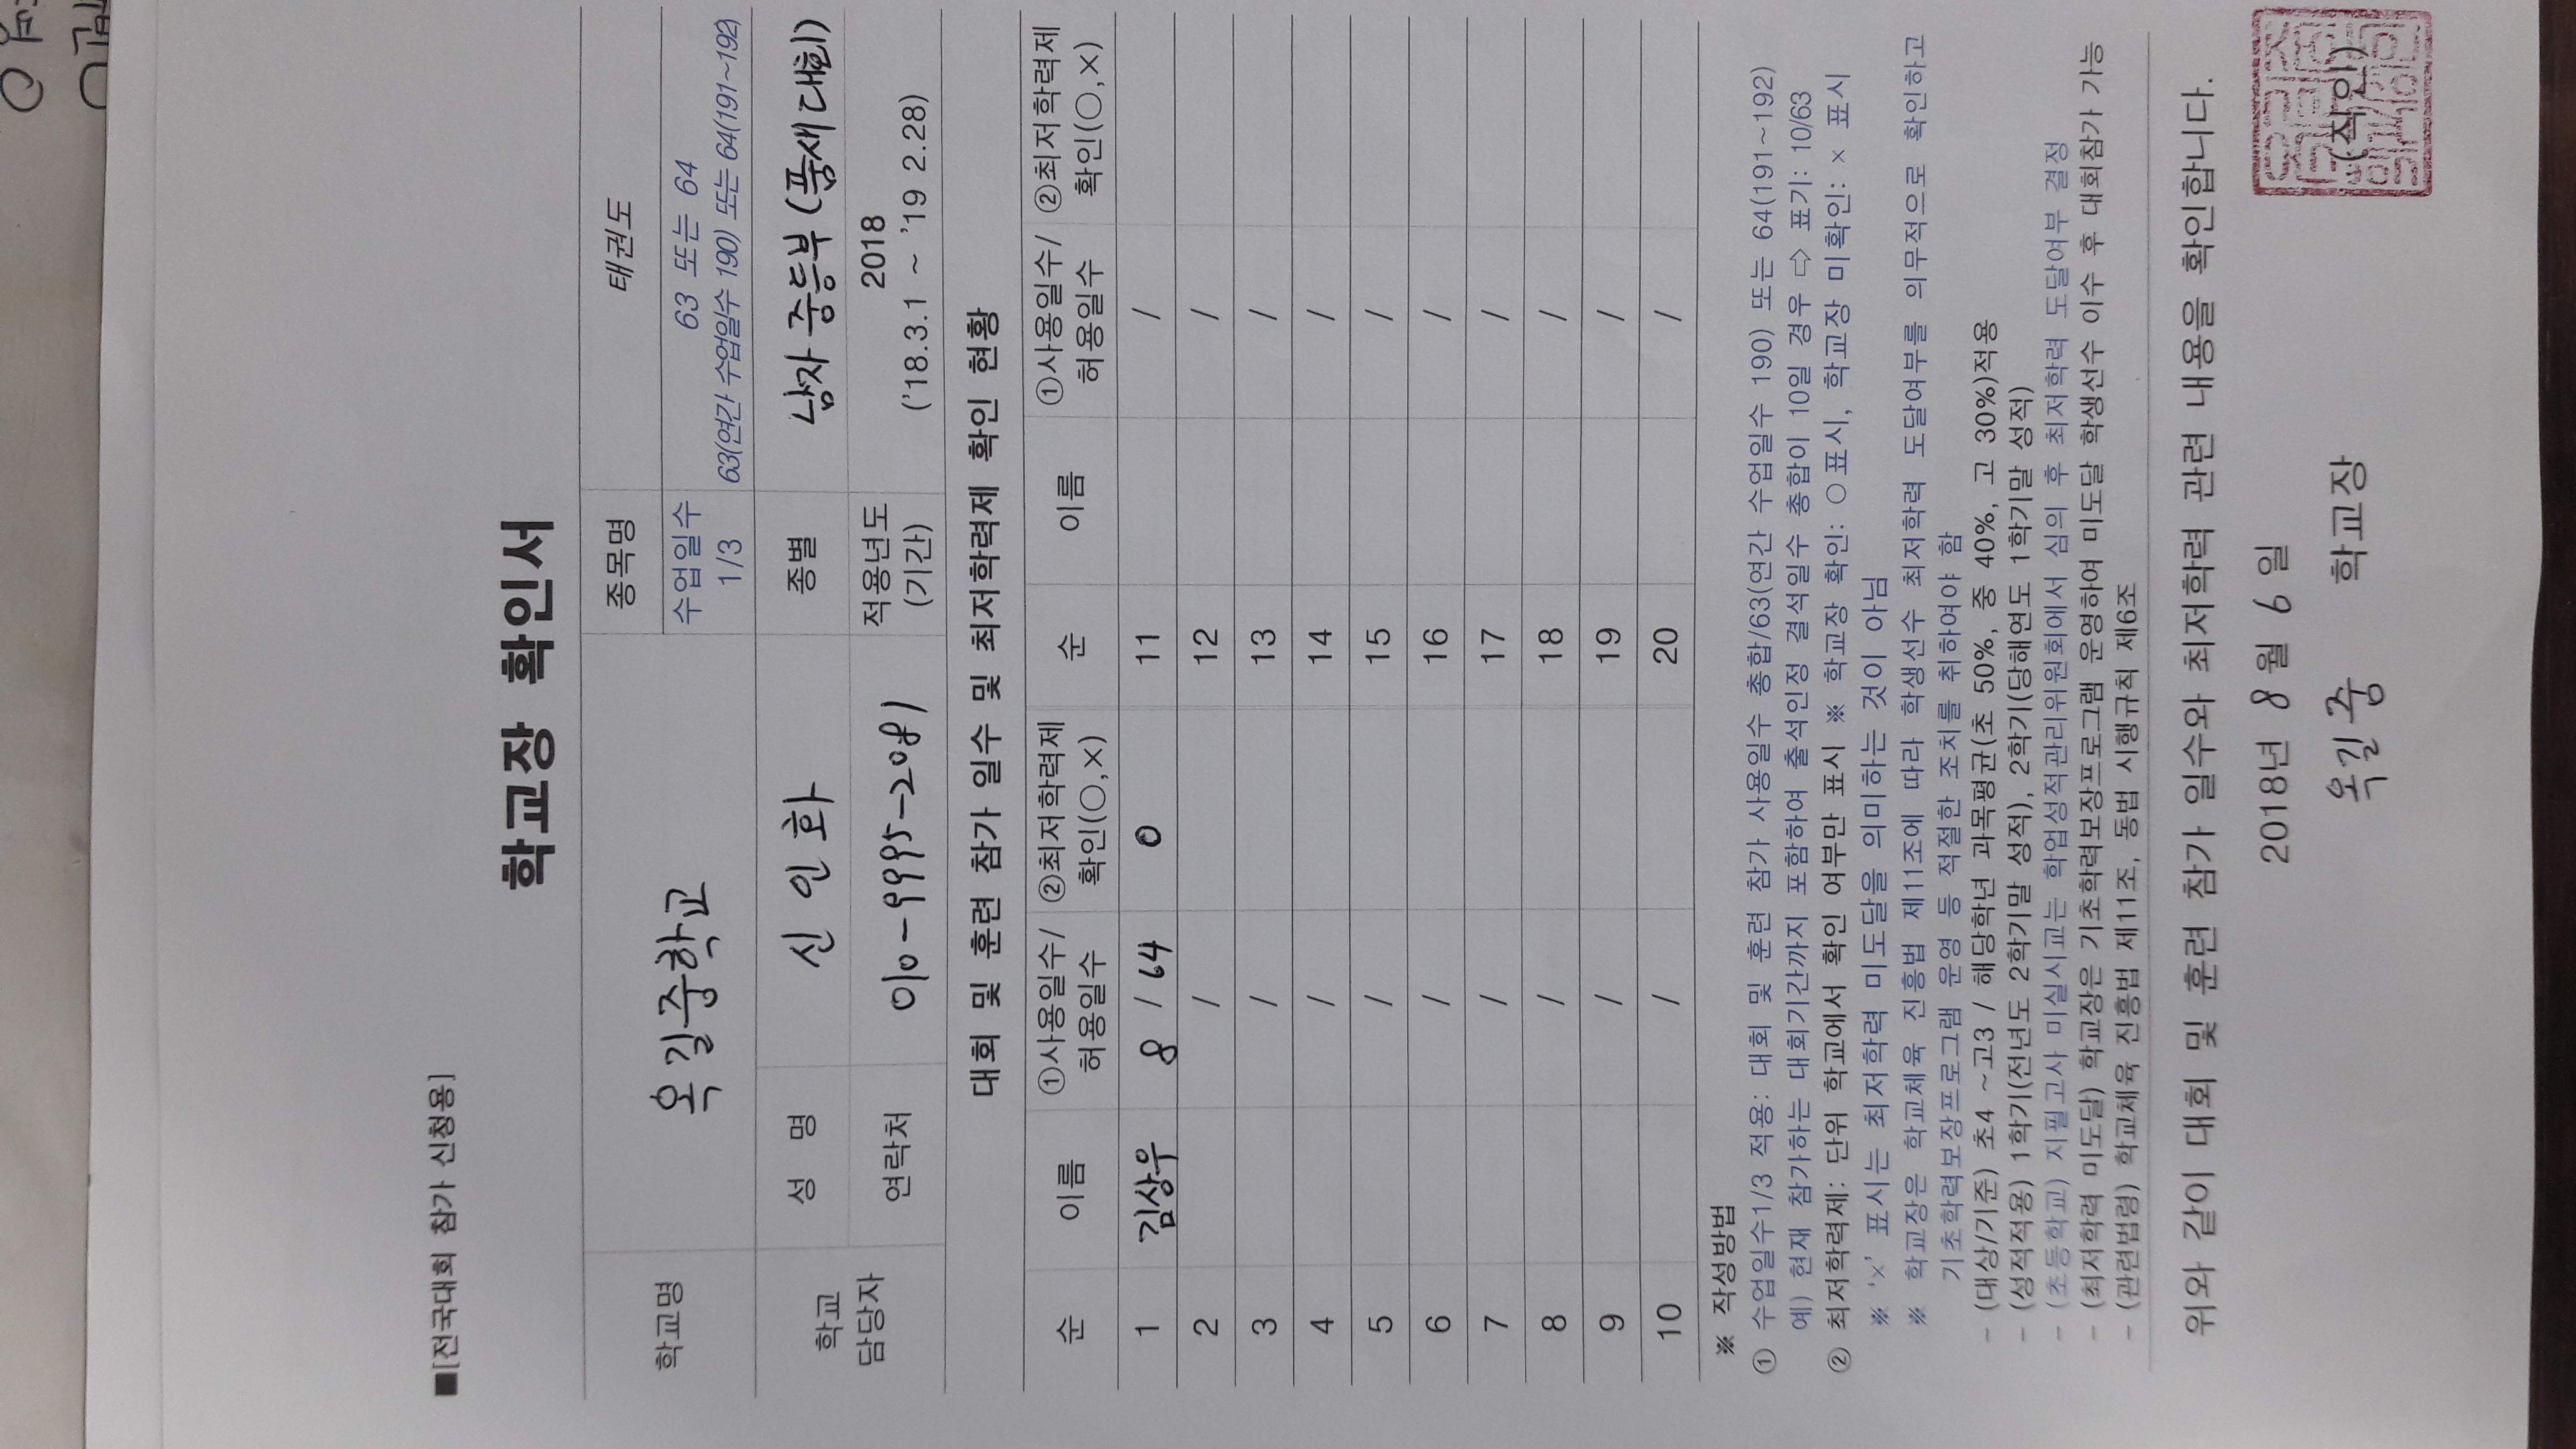 ■[전국대회 참가 신청용]
학교장 확인서
학교명 옥길중학교 종목명 태권도
수업일수 1/3 63 또는 64
63(연간 수업일수 190) 또는 64(191~192)
학교 담당자 성 명 신인화 종별 남자중등부(품새대회)
연락처 010-9995-2081 적용년도 (기간) 2018
('18.3.1 ~ '19 2.28)
대회 및 훈련 참가 일수 및 최저학력제 확인 현황
순 이름 ①사용일수/허용일수 ②최저학력제 확인(○,×) 순 이름 ①사용일수/허용일수 ②최저학력제 확인(○,×)
1 김상우 8 / 64 0 11 /
2 / 12 /
3 / 13 /
4 / 14 /
5 / 15 /
6 / 16 /
7 / 17 /
8 / 18 /
9 / 19 /
10 / 20 /
※ 작성방법
① 수업일수1/3 적용: 대회 및 훈련 참가 사용일수 총합/63(연간 수업일수 190) 또는 64(191~192)
예) 현재 참가하는 대회기간까지 포함하여 출석인정 결석일수 총합이 10일 경우 ⇨ 표기: 10/63
② 최저학력제: 단위 학교에서 확인 여부만 표시 ※ 학교장 확인: ○표시, 학교장 미확인: × 표시
※ '×' 표시는 최저학력 미도달을 의미하는 것이 아님
※ 학교장은 학교체육 진흥법 제11조에 따라 학생선수 최저학력 도달여부를 의무적으로 확인하고
기초학력보장프로그램 운영 등 적절한 조치를 취하여야 함
- (대상/기준) 초4 ~고3 / 해당학년 과목평균(초 50%, 중 40%, 고 30%)적용
- (성적적용) 1학기(전년도 2학기말 성적), 2학기(당해연도 1학기말 성적)
- (초등학교) 지필고사 미실시교는 학업성적관리위원회에서 심의 후 최저학력 도달여부 결정
- (최저학력 미도달) 학교장은 기초학력보장프로그램 운영하여 미도달 학생선수 이수 후 대회참가 가능
- (관련법령) 학교체육 진흥법 제11조, 동법 시행규칙 제6조
위와 같이 대회 및 훈련 참가 일수와 최저학력 관련 내용을 확인합니다.
2018년 8월 6일
옥길중 학교장 (직인)